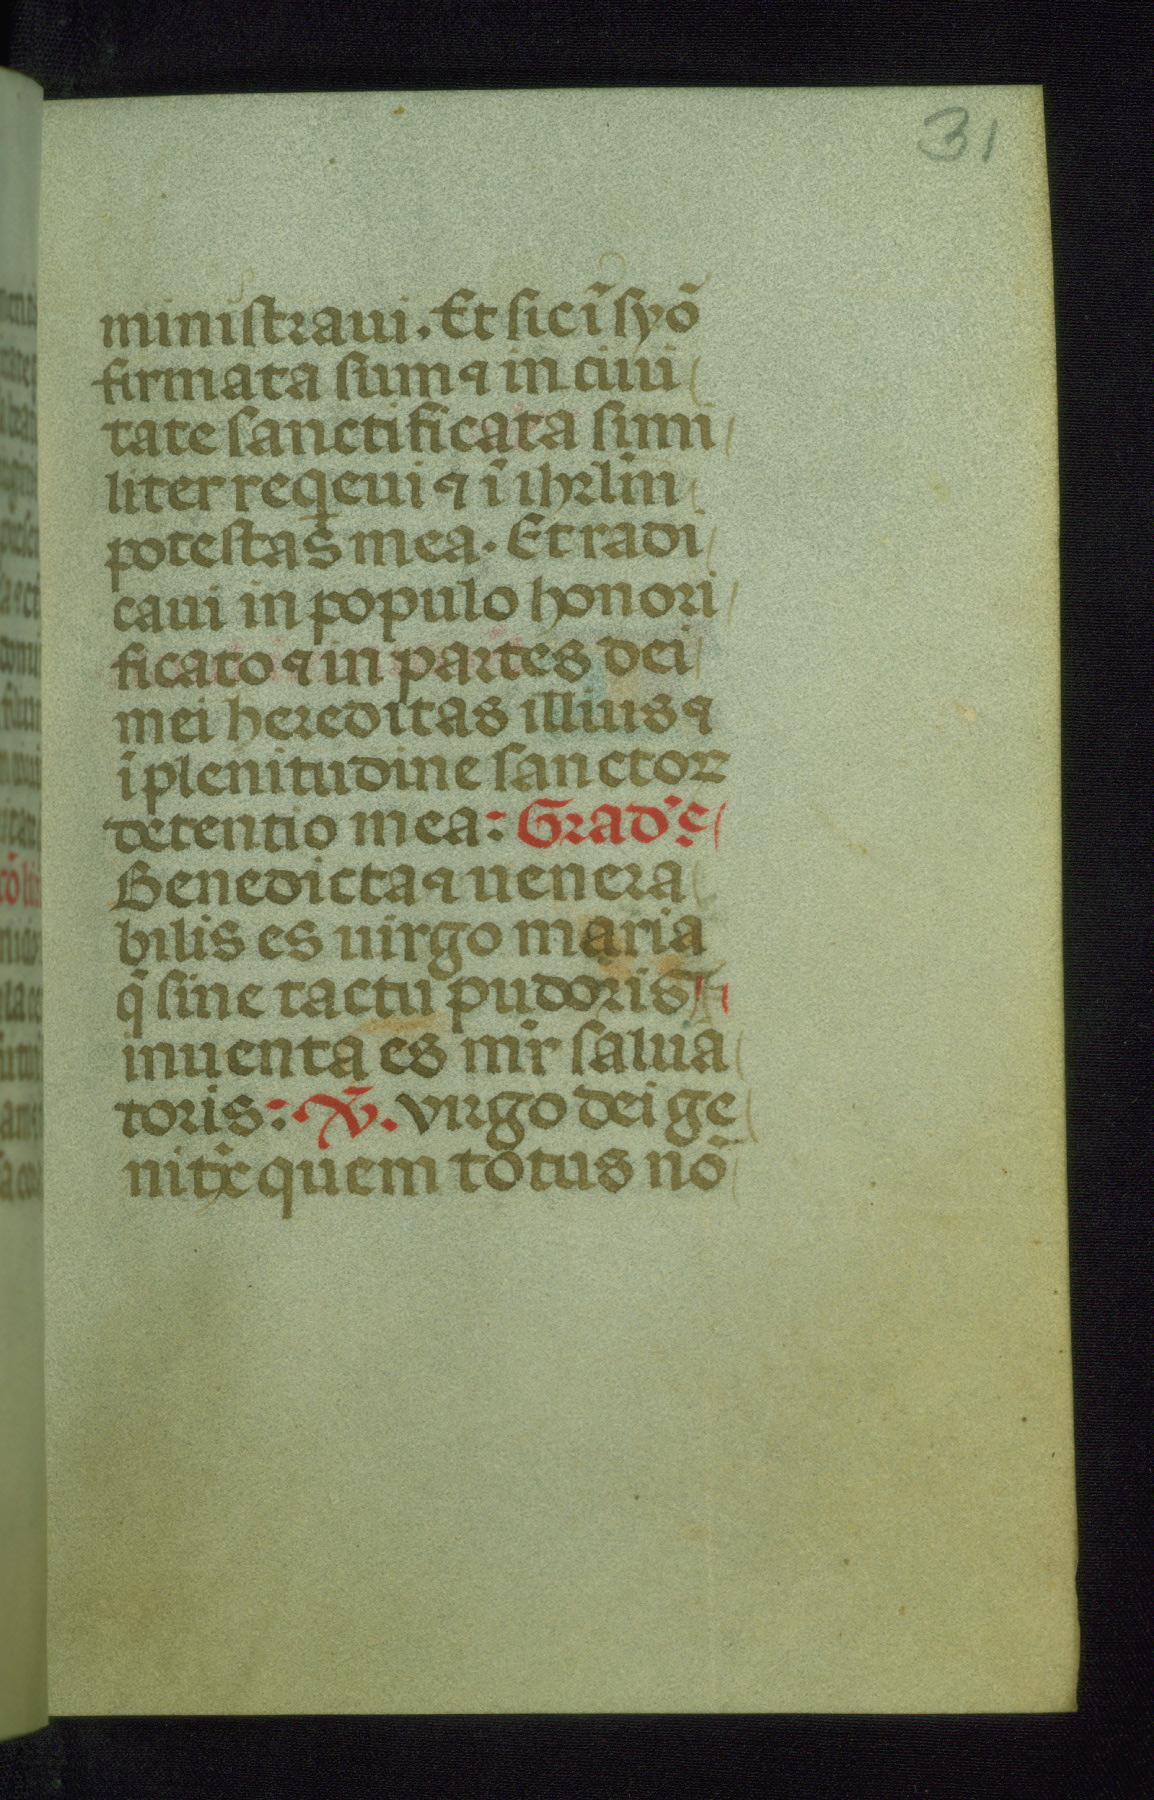 31
ministraui. Et sic ī syō
firmata sum ⁊ in ciui
tate sanctificata simi
liter reqeui ⁊ ī ihrlm̄
potestas mea. Et radi
caui in populo honori
ficato ⁊ in partes dei
mei hereditas illius ⁊
ī plenitudine sanctoꝝ
detentio mea: Grad'ꝭ
Benedicta ⁊ uenera
bilis es uirgo maria
q̄ sine tactu pudoris
inuenta es mr̄ salua
toris: V̄. virgo dei ge
nitx̄ quem totus nō